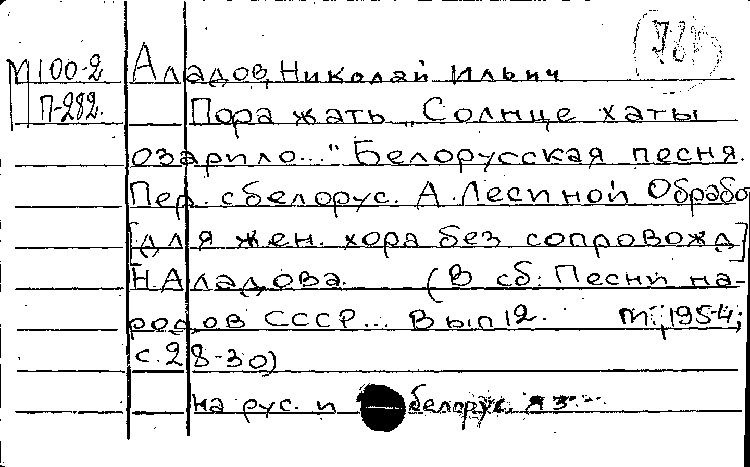 М100-2 Аладов, Николай Ильич
П-282. Пора жать „Солнце хаты
озарило..." Белорусская песня.
Пер. с белорус. А. Лесиной Обрабо
[для жен. хора без сопровожд]
Н.Аладова. (В сб: Песни на-
родов СССР... Вып 12. М., 1954;
с. 28-30)
на рус. и белорус. яз.